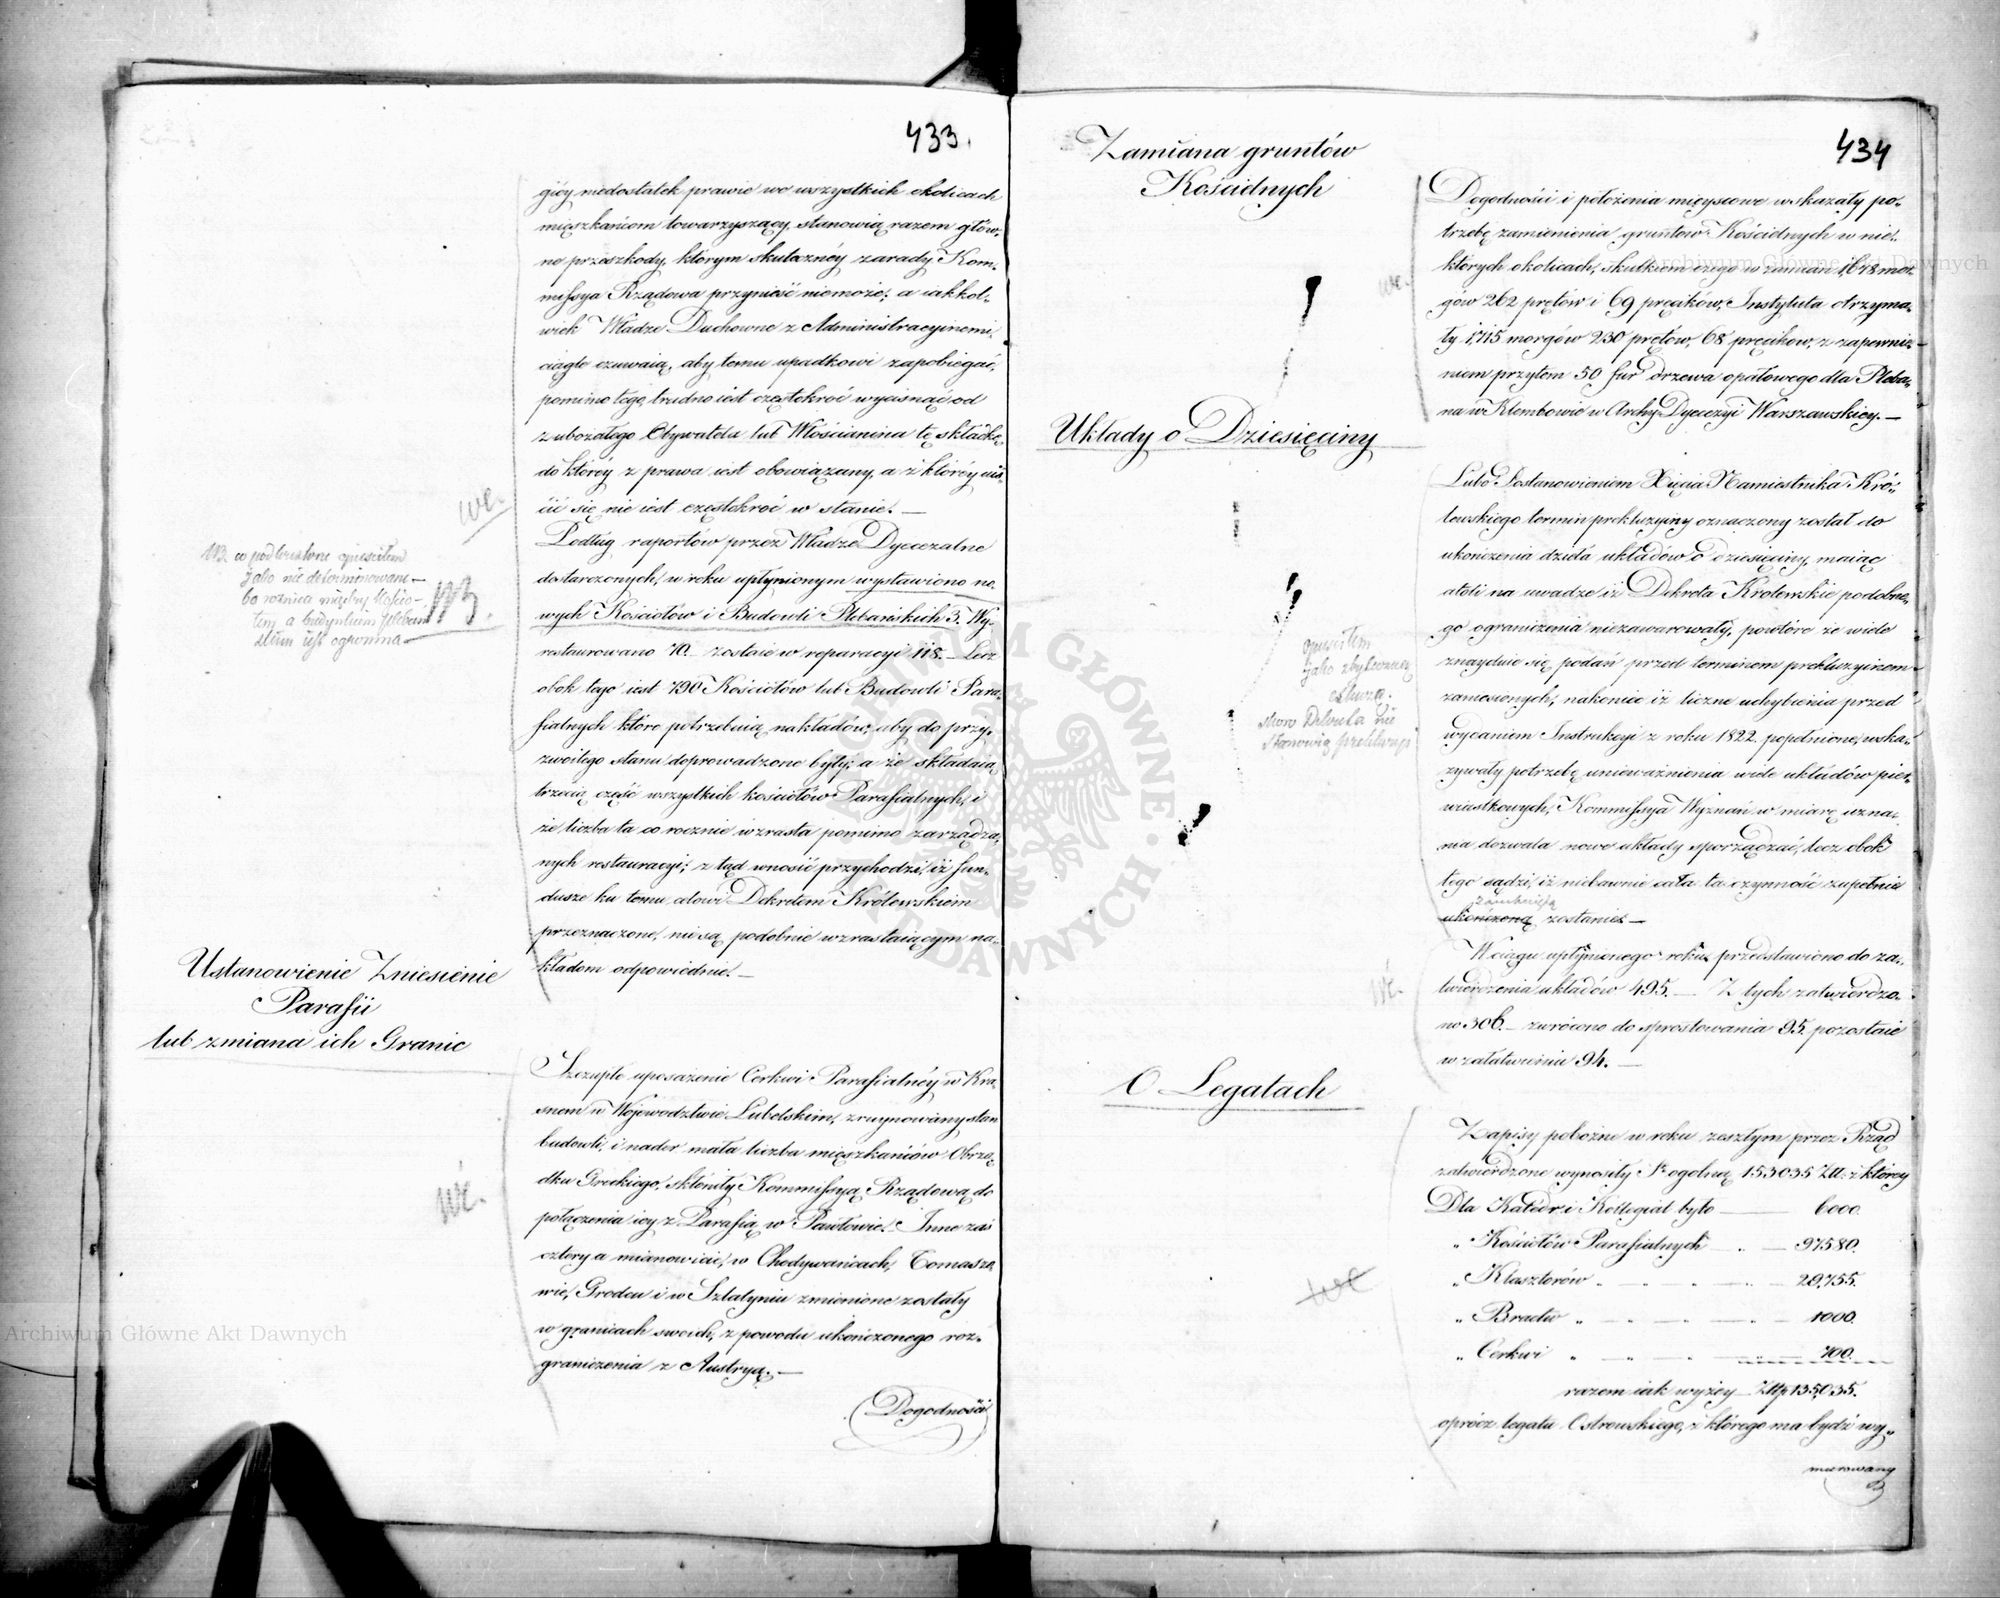 433.
gicy niedostatek prawie we wszystkich okolicach
mięszkańcom towarzyszący, stanowią razem głów-
ne przeszkody, którym skuteznéy zarady Kom-
missya Rządowa przynieść niemoże; a iakkol-
wiek Władze Duchowne z Administracyinemi
ciągle czuwaią, aby temu upadkowi zapobiegać,
pomimo tego, trudno iest częstokroć wycisnąć od
zubożałego Obywatela lub Włościanina tę składkę,
do któréy z prawa iest obowiązany, a z któréy uiś-
cić się nie iest częstokroć w stanie. —
we.
Podług raportów przez Władze Dyecezalne
dostarczonych, w roku upłynionym wystawiono no-
wych Kościołów i Budowli Plebańskich 3. Wy-
restaurowano 70. zostaie w reparacyi 118. — Lecz
obok tego iest 790 Kościołów lub Budowli Para-
fialnych które potrzebuią nakładów, aby do przy-
zwoitego stanu doprowadzone były; a że składaią
trzecią część wszystkich kościołów Parafialnych, i
że liczba ta co rocznie wzrasta pomimo zarządza-
nych restauracyi; z tąd wnosić przychodzi, iż fun-
dusze ku temu celowi Dekretem Królewskiem
przeznaczone, nie są podobnie wzrastaiącym na-
kładom odpowiednie. —
NB. co podkreślone opuściłem
jako nie determinowane —
bo różnica między Kościo-
łem a budynkiem Pleban-
skim jest ogromna —
NB.
Ustanowienie Zniesienie
Parafii
lub zmiana ich Granic
Szczupłe uposażenie Cerkwi Parafialnéy w Kra-
snem w Województwie Lubelskim, zruynowany stan
budowli, i nader mała liczba mięszkańców Obrzą-
dku Greckiego, skłoniły Kommissyą Rządową do
połączenia iey z Parafią w Pawłowie. Inne zaś
cztery a mianowicie, w Chodywańcach, Tomaszo-
wie, Grodou i w Sztatyniu zmienione zostały
w granicach swoich, z powodu ukończonego roz-
graniczenia z Austryą. —
we.
Dogodności
434
Zamiana gruntów
Kościelnych
Dogodności i położenia mięyscowe wskazały po-
trzebę zamienienia gruntów Kościelnych w nie-
których okolicach, skutkiem czego w zamian 1,678 mor-
gów 262 prętów i 69 pręcików, Instytuta otrzyma-
ły 1,715 morgów 230 prętów, 68 pręcików, z zapewnie-
niem przytem 50 fur drzewa opałowego dla Pleba-
na w Klembowie w Archy Dyecezyi Warszawskiey. —
we.
Układy o Dziesięciny
Lubo Postanowieniem Xięcia Namiestnika Kró-
lewskiego termin prekluzyiny oznaczony został do
ukończenia dzieła układów o dziesięciny, maiąc
atoli na uwadze iż Dekreta Królewskie podobne-
go ograniczenia niezawarowały, powtóre że wiele
znayduie się podań przed terminem prekluzyinem
zaniesionych, nakoniec iż liczne uchybienia przed
wydaniem Instrukcyi z roku 1822. popełnione, wska-
zywały potrzebę unieważnienia wiele układów pier-
wiastkowych, Kommissya Wyznań w miarę uzna-
nia dozwala nowe układy sporządzać, lecz obok
tego sądzi, iż niebawnie cała ta czynność zupełnie
zamkniętą
ukończoną zostanie. —
opuściłem
jako zbyteczną
skoro Dekreta nie
stanowią prekluzyi
W ciągu upłynionego roku, przedstawiono do za-
twierdzenia układów 495. — Z tych zatwierdzo-
no 306. — zwrócono do sprostowania 95. pozostaie
w załatwieniu 94. —
we.
O Legatach
Zapisy pobożne w roku zeszłym przez Rząd
zatwierdzone wynosiły Sę ogólną 153035 Złł: z którey
Dla Katedr i Kollegiat było — 6000.
„ Kościołów Parafialnych „ — 97580.
„ Klasztorów „ — „ — „ — 29,755.
„ Bractw „ — „ — „ — 1000.
„ Cerkwi „ — „ — „ — 700.
razem iak wyżey Złłp 135,035.
oprócz legatu Ostrowskiego, z którego ma bydź wy-
we
murowany
Archiwum Główne Akt Dawnych
Archiwum Główne Akt Dawnych
ARCHIWUM GŁÓWNE AKT DAWNYCH